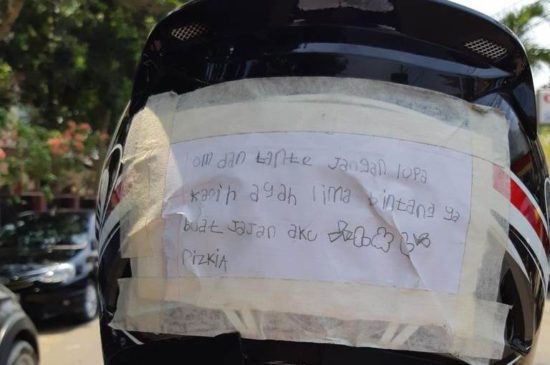 Om dan tante jangan lupa
kasih ayah lima bintang ya
buat jajan aku
RIZKIA